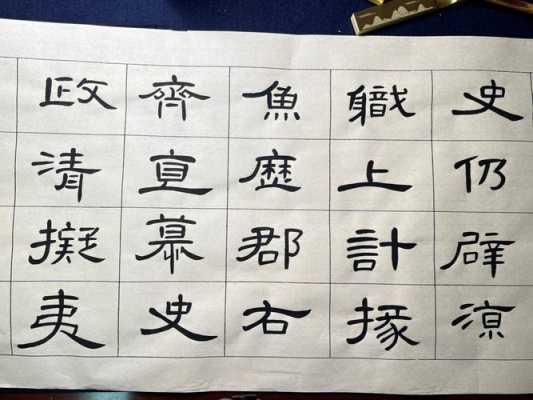 政清擬夷
齊直慕史
魚歷郡右
職上計掾
史仍辟涼